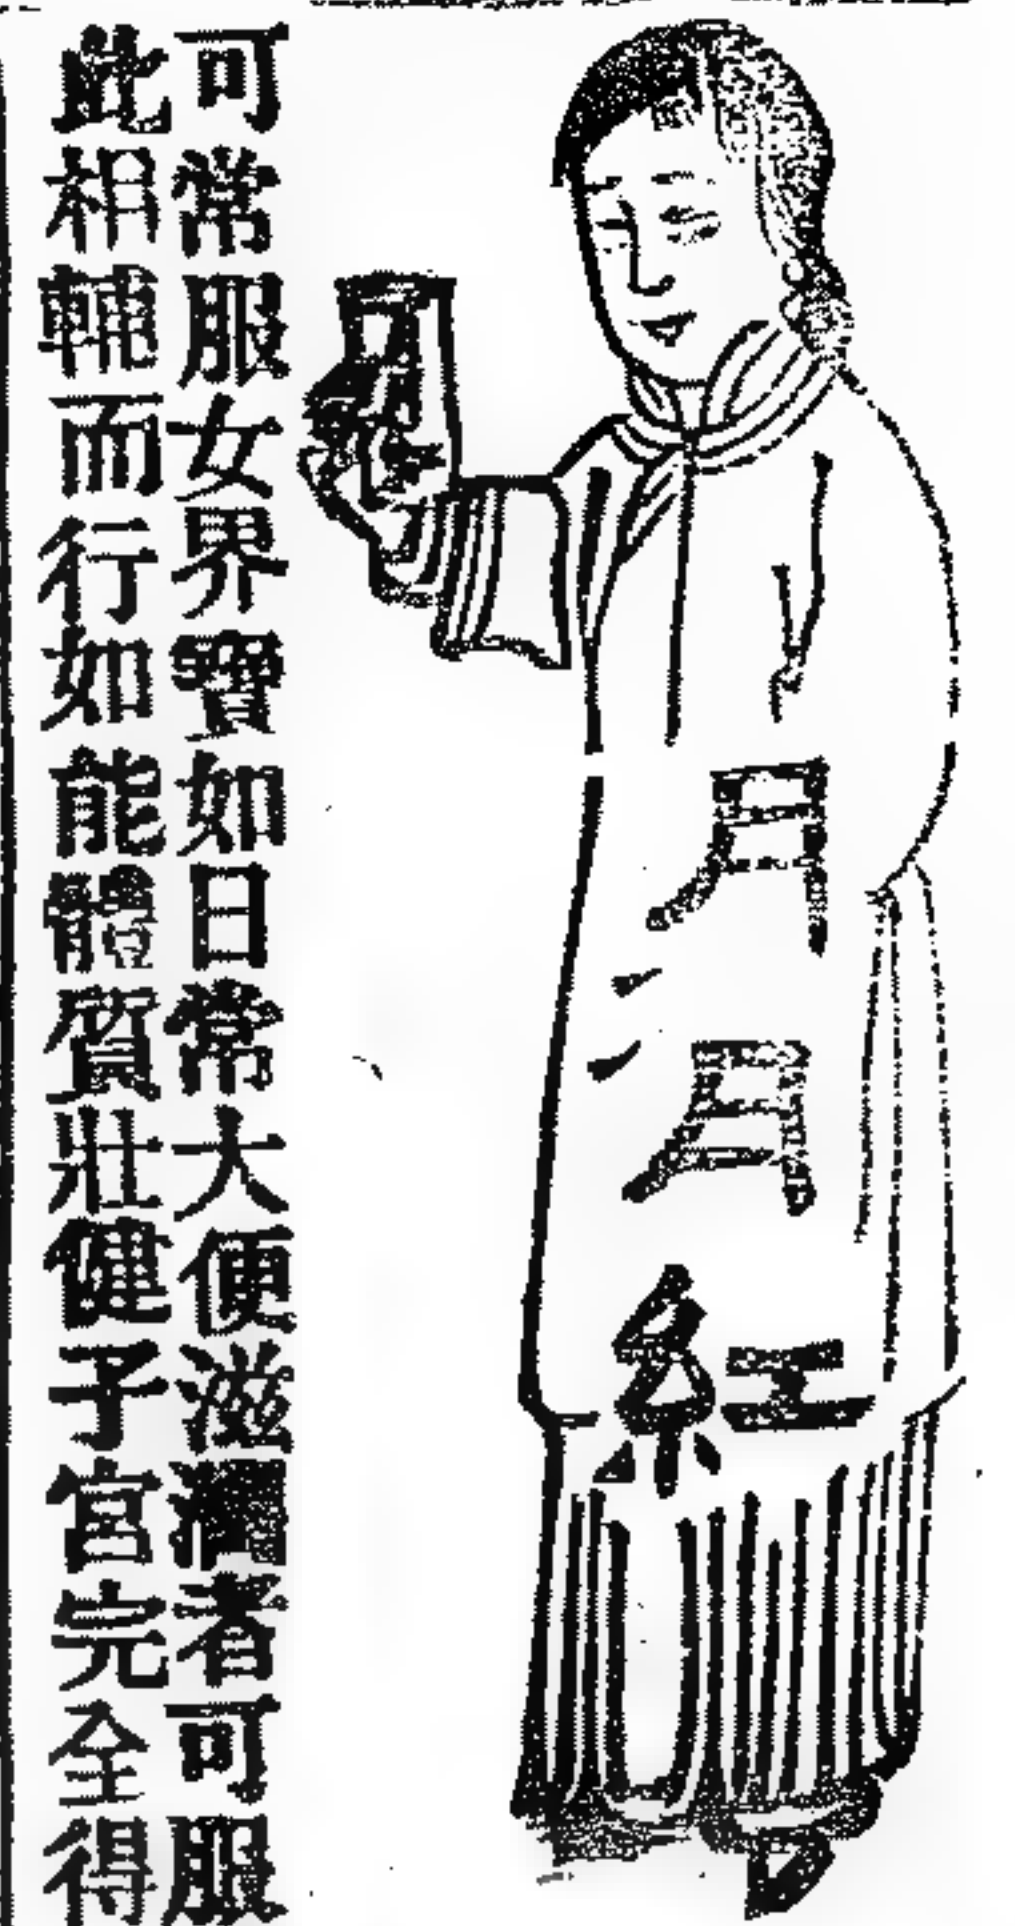 月月紅
可常服女界寶如日常大便滋者可服
此相輔而行如能體質壯健子宮完全得